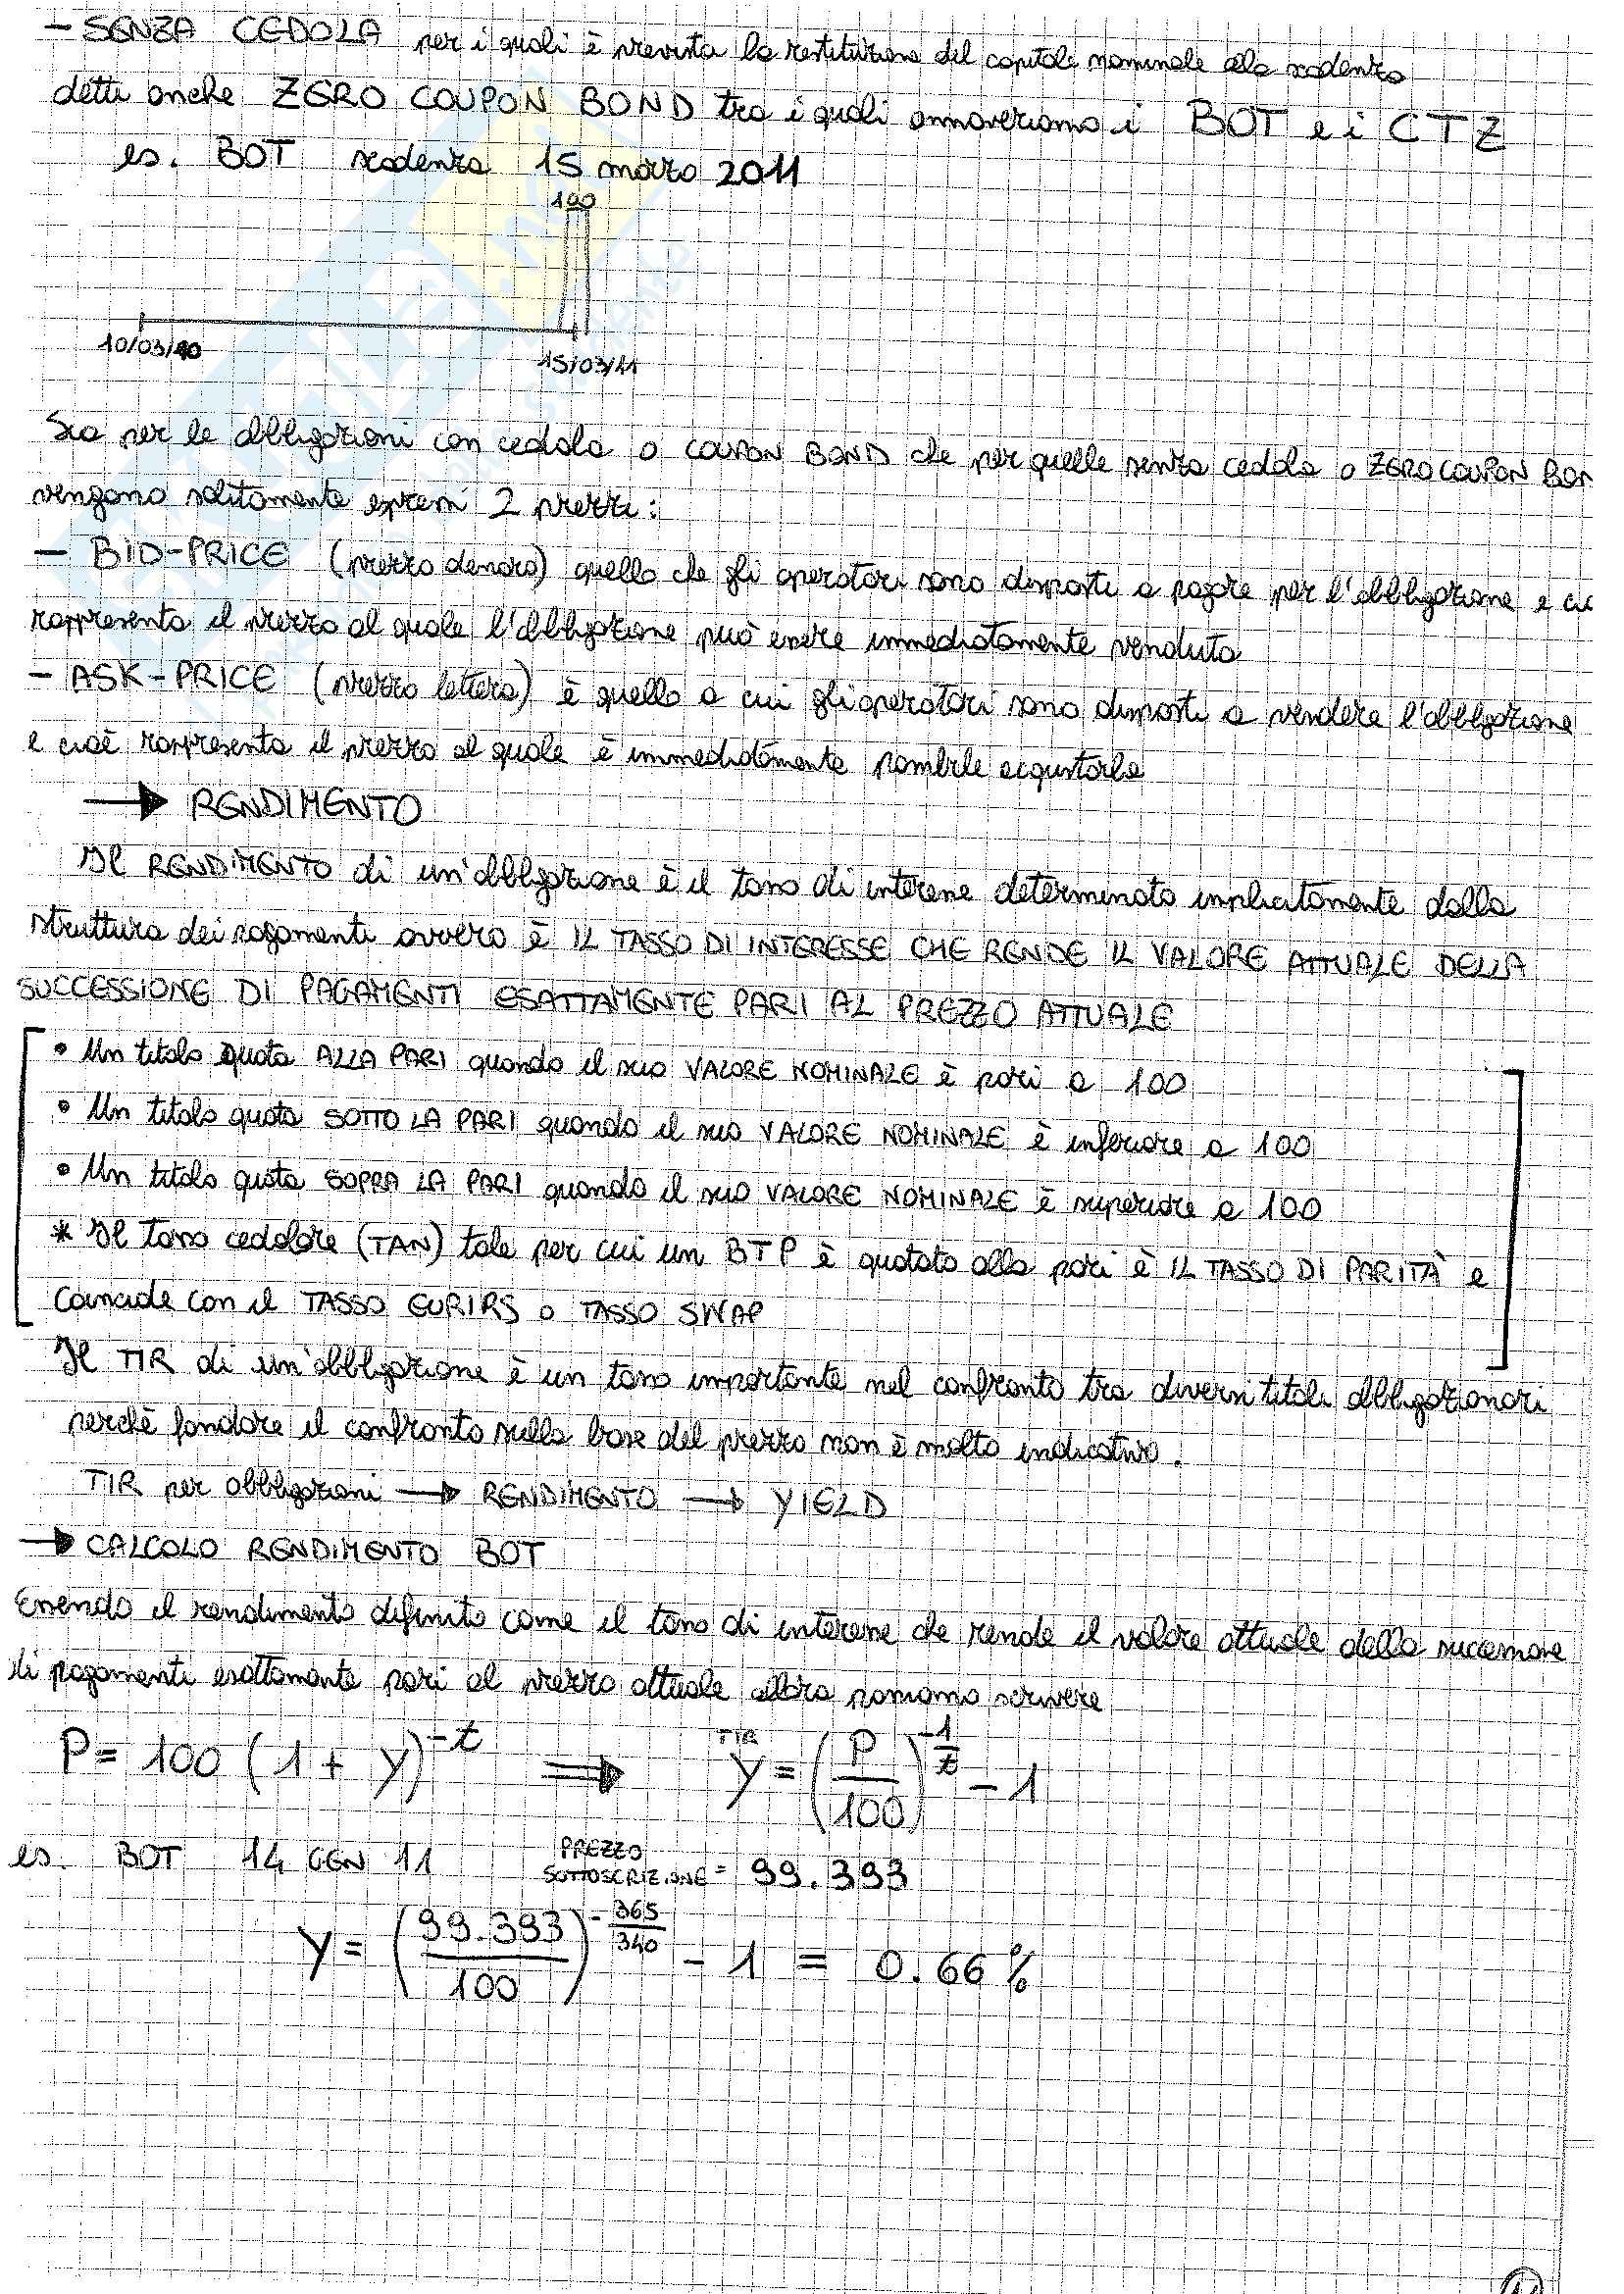 - SENZA CEDOLA per i quali è prevista la restituzione del capitale nominale alla scadenza
detti anche ZERO COUPON BOND tra i quali annoveriamo i BOT e i CTZ
es. BOT scadenza 15 marzo 2011
100
10/03/10
15/03/11
Sia per le obbligazioni con cedola o COUPON BOND che per quelle senza cedola o ZERO COUPON BON
vengono solitamente espressi 2 prezzi:
- BID-PRICE (prezzo denaro) quello che gli operatori sono disposti a pagare per l'obbligazione e cio
rappresenta il prezzo al quale l'obbligazione può essere immediatamente venduta
- ASK-PRICE (prezzo lettera) è quello a cui gli operatori sono disposti a vendere l'obbligazione
e cioè rappresenta il prezzo al quale è immediatamente possibile acquistarla
→ RENDIMENTO
Il RENDIMENTO di un'obbligazione è il tasso di interesse determinato implicitamente dalla
struttura dei pagamenti ovvero è IL TASSO DI INTERESSE CHE RENDE IL VALORE ATTUALE DELLA
SUCCESSIONE DI PAGAMENTI ESATTAMENTE PARI AL PREZZO ATTUALE
• Un titolo quota ALLA PARI quando il suo VALORE NOMINALE è pari a 100
• Un titolo quota SOTTO LA PARI quando il suo VALORE NOMINALE è inferiore a 100
• Un titolo quota SOPRA LA PARI quando il suo VALORE NOMINALE è superiore a 100
* Il tasso cedolare (TAN) tale per cui un BTP è quotato alla pari è IL TASSO DI PARITÀ e
coincide con il TASSO EURIRS o TASSO SWAP
Il TIR di un'obbligazione è un tasso importante nel confronto tra diversi titoli obbligazionari
perchè fondare il confronto sulla base del prezzo non è molto indicativo.
TIR per obbligazioni → RENDIMENTO → YIELD
→ CALCOLO RENDIMENTO BOT
Essendo il rendimento definito come il tasso di interesse che rende il valore attuale della successione
di pagamenti esattamente pari al prezzo attuale allora possiamo scrivere
P = 100 (1 + y)^-t ⇒ TIR y = (P/100)^-1/t - 1
es. BOT 14 GEN 11 PREZZO SOTTOSCRIZIONE = 99.393
y = (99.393/100)^-365/340 - 1 = 0.66%